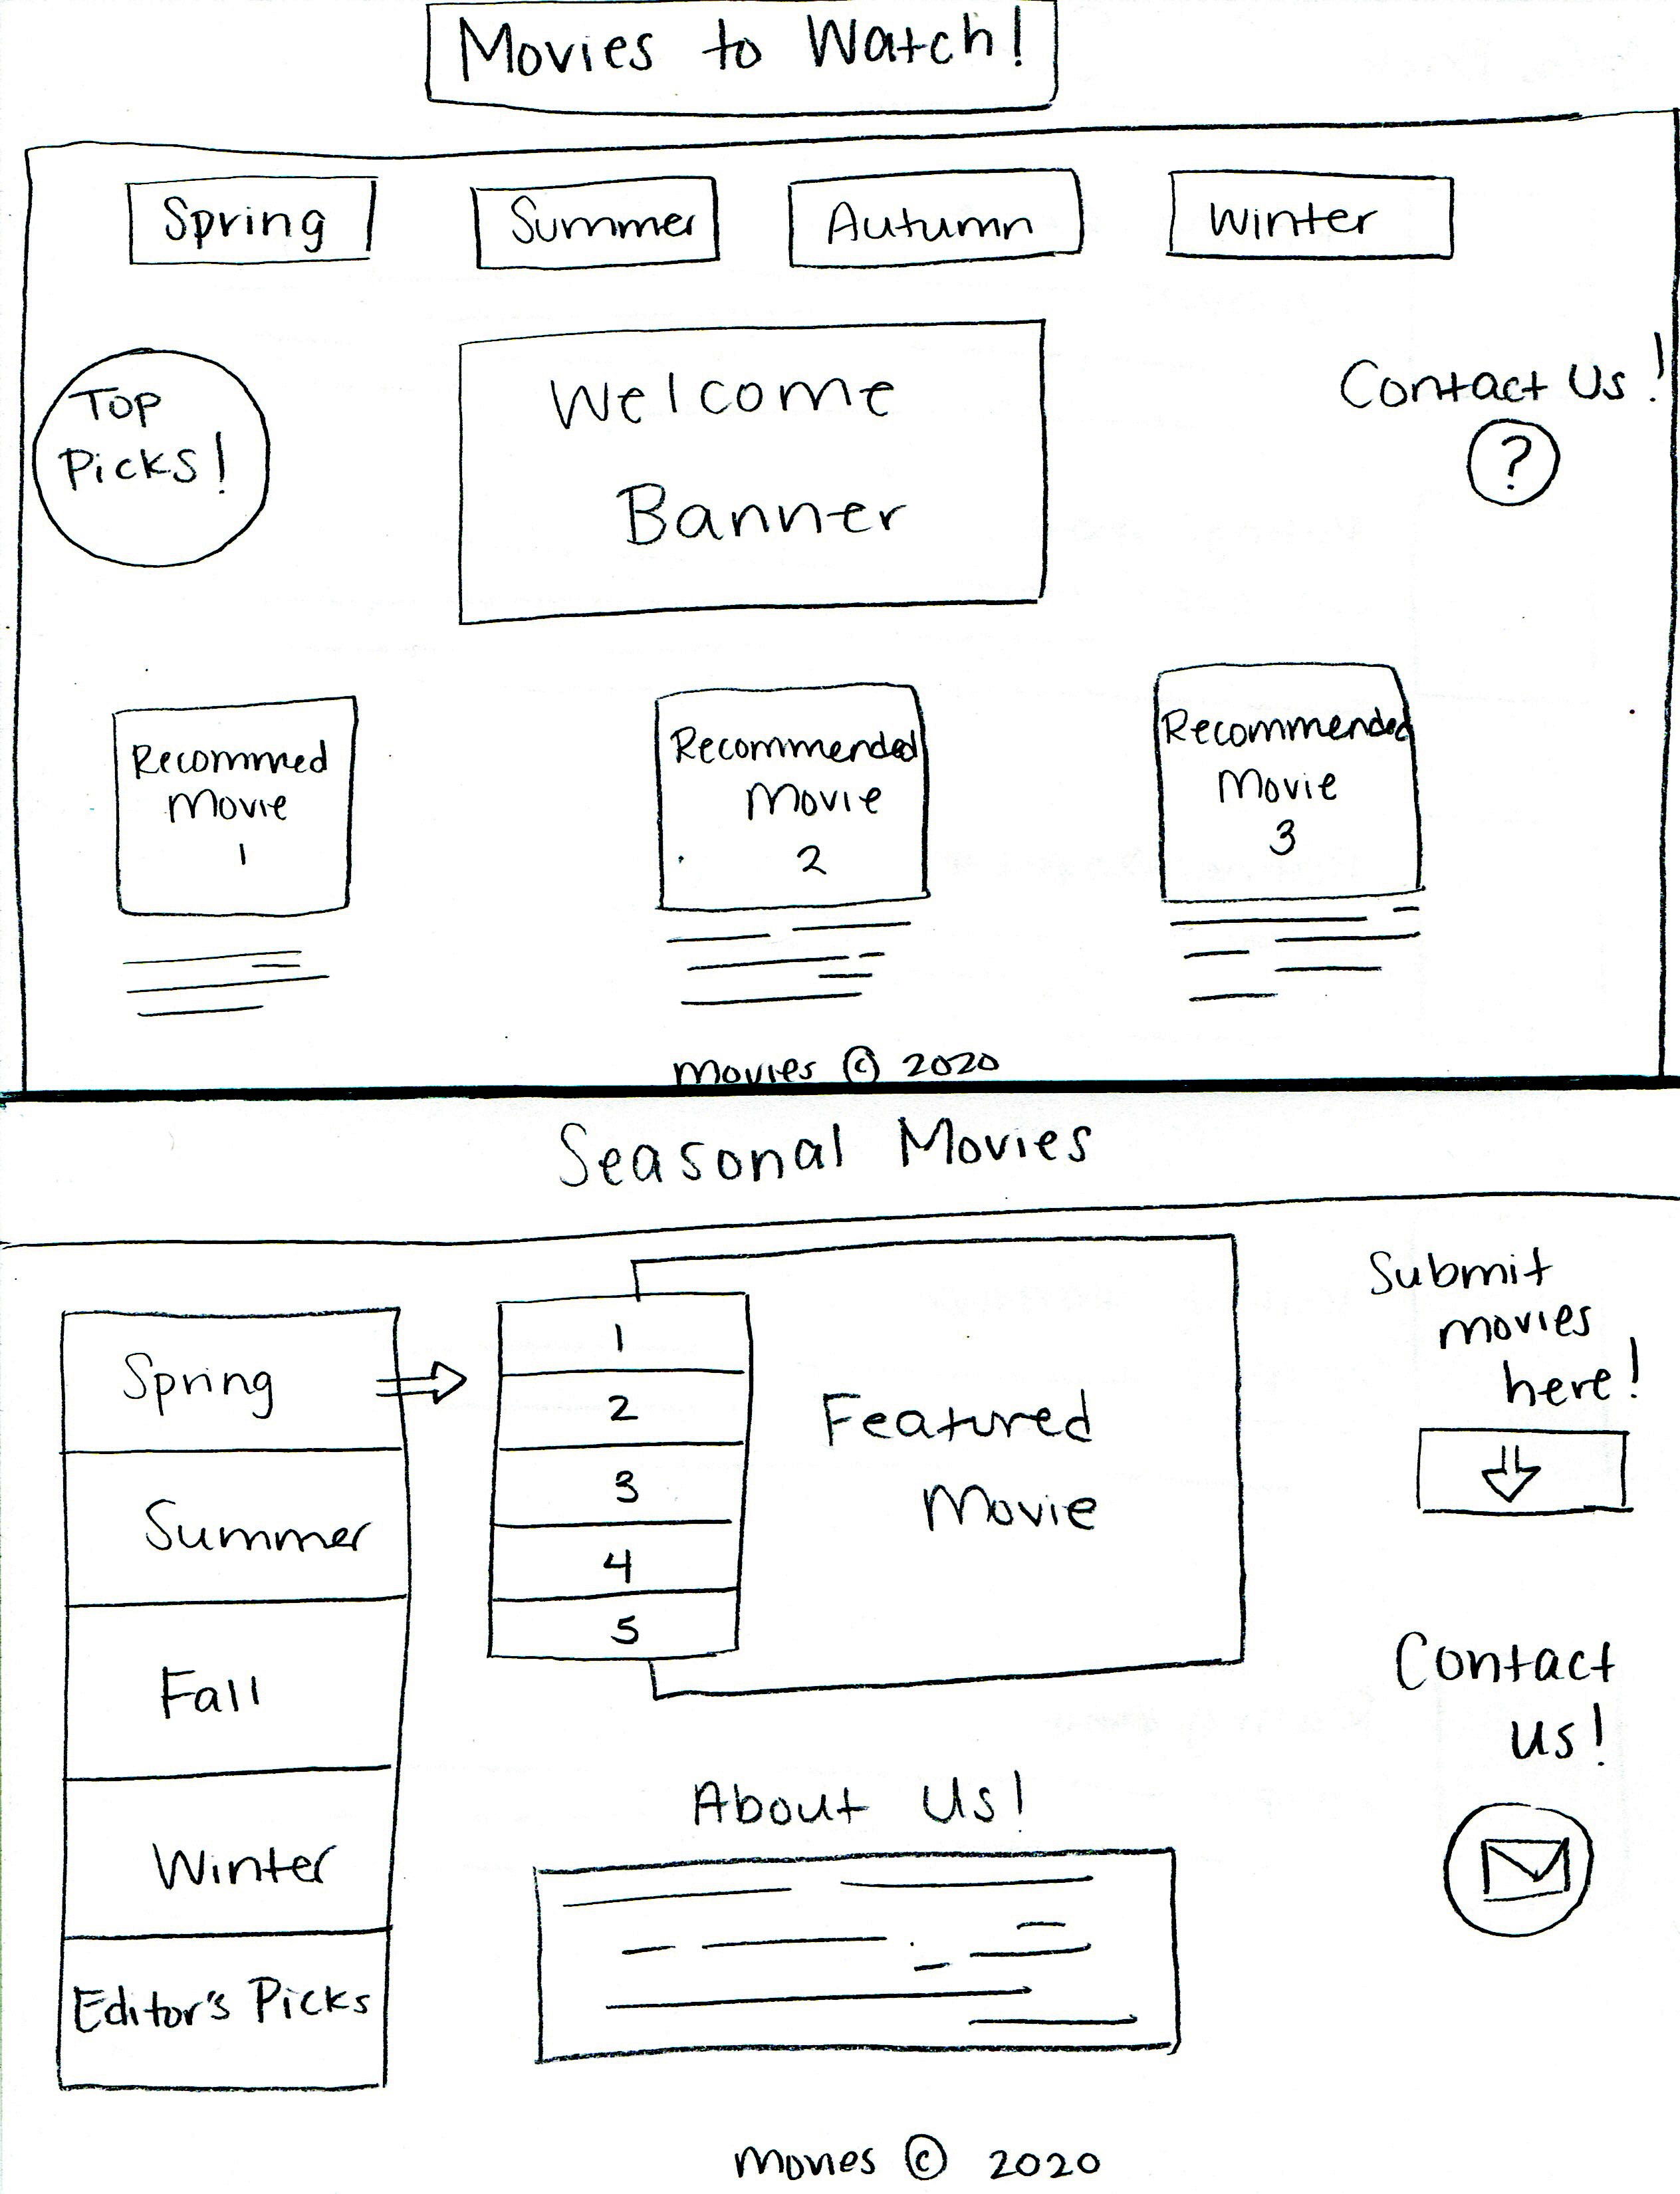 Movies to Watch!
Spring
Summer
Autumn
Winter
Top
Picks!
Welcome
Banner
Contact Us!
?
Recommed
Movie
1
Recommended
Movie
2
Recommended
Movie
3
Movies © 2020
Seasonal Movies
Spring
Summer
Fall
Winter
Editor's Picks
1
2
3
4
5
Featured
Movie
Submit
movies
here!
Contact
us!
About Us!
Movies © 2020